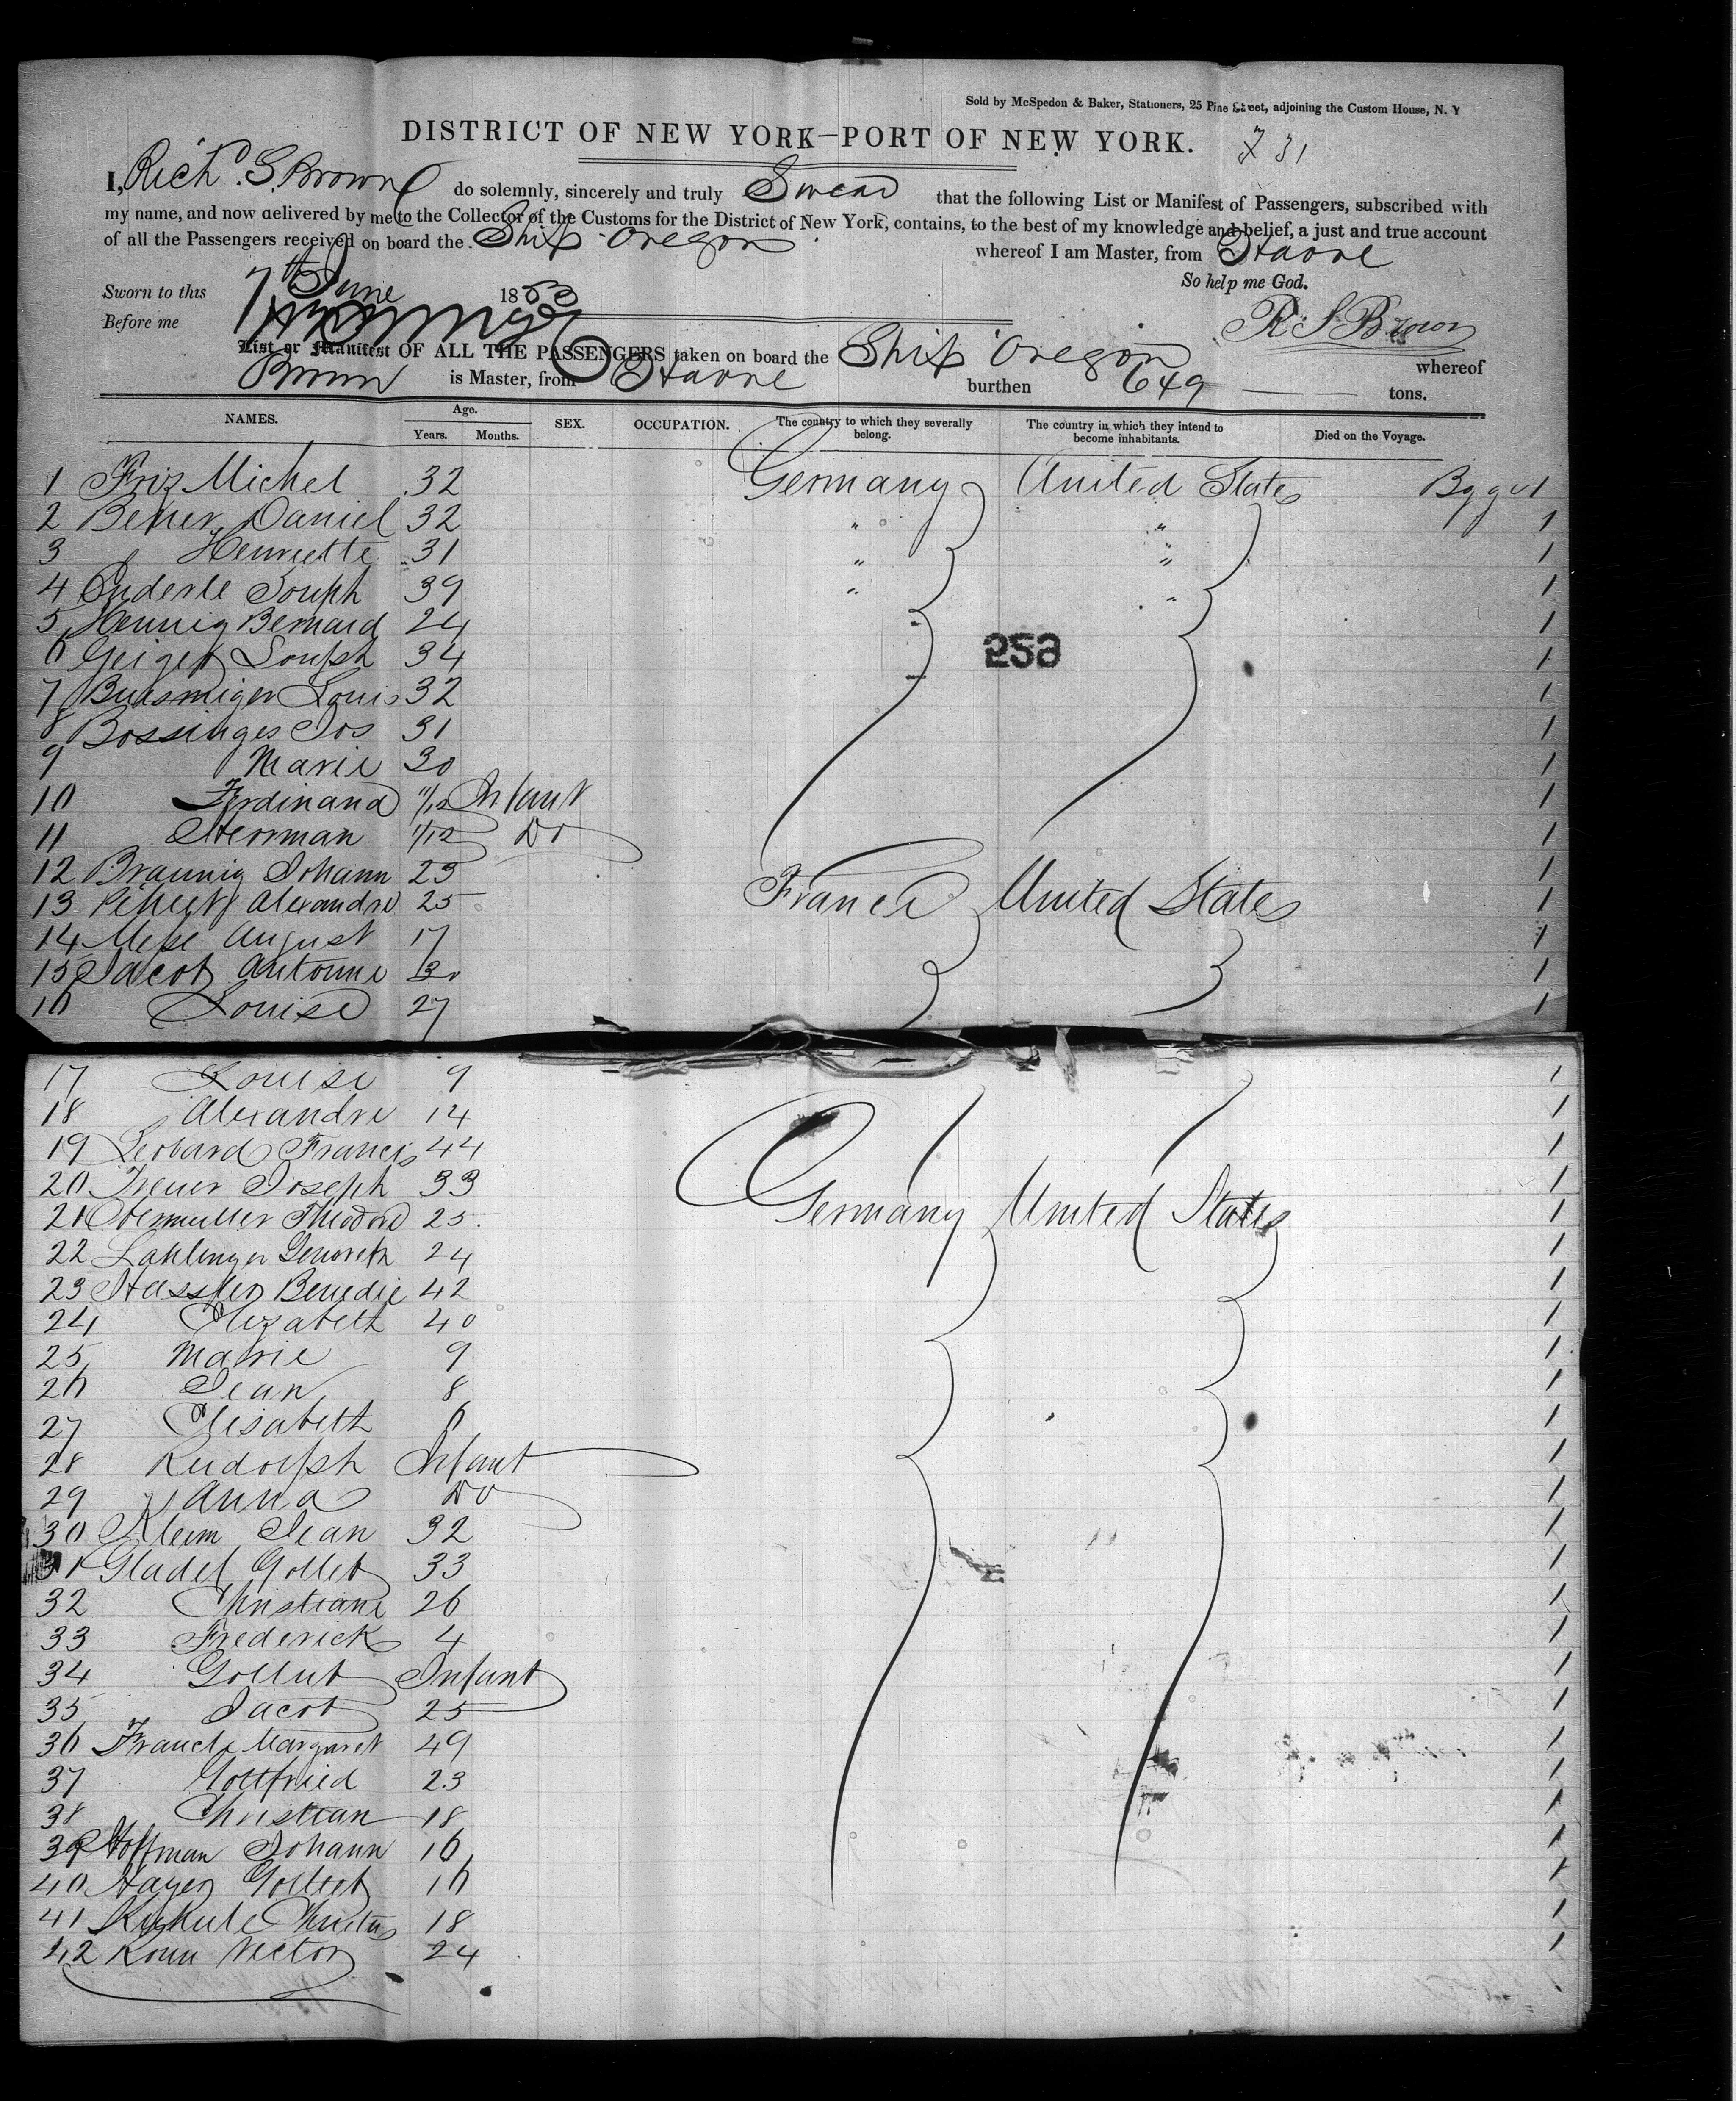 Sold by McSpedon & Baker, Stationers, 25 Pine Street, adjoining the Custom House, N. Y
DISTRICT OF NEW YORK—PORT OF NEW YORK.
731
I, Richd. S. Brown do solemnly, sincerely and truly Swear that the following List or Manifest of Passengers, subscribed with
my name, and now delivered by me to the Collector of the Customs for the District of New York, contains, to the best of my knowledge and belief, a just and true account
of all the Passengers received on board the Ship Oregon whereof I am Master, from Havre
So help me God.
Sworn to this 7th June 1853
Before me
R S Brown
List or Manifest OF ALL THE PASSENGERS taken on board the Ship Oregon whereof
Brown is Master, from Havre burthen 649 tons.
NAMES. Age. Years. Months. SEX. OCCUPATION. The country to which they severally belong. The country in which they intend to become inhabitants. Died on the Voyage.
1 Friz Michel 32 Germany United States 1
2 Beker Daniel 32 " " 1
3 Henriette 31 " " 1
4 Enderle Joseph 39 " " 1
5 Hennig Bernard 24 1
6 Geiger Joseph 34 1
258
7 Louis 32 1
8 Bossinges Jos 31 1
9 Marie 30 1
10 Ferdinand 11/12 Infant 1
11 Herrman 1/12 Do 1
12 Braunig Johann 23 1
13 Alexandre 25 France United States 1
14 August 17 1
15 Jacob Antoine 30 1
16 Louise 27 1
17 Louise 9 1
18 Alexandre 14 1
19 Leobard Francis 44 1
20 Joseph 33 1
21 Obermuller Theodore 25 Germany United States 1
22 24 1
23 Haessler Benedic 42 1
24 Elizabeth 40 1
25 Marie 9 1
26 Jean 8 1
27 Elisabeth 6 1
28 Rudolph Infant 1
29 Anna Do 1
30 Kleim Jean 32 1
31 Gladel Gotleb 33 1
32 Christiane 26 1
33 Frederick 4 1
34 Infant 1
35 Jacob 25 1
36 Margaret 49 1
37 Gottfried 23 1
38 Christian 18 1
39 Hoffman Johann 16 1
40 Hayer Gotleib 16 1
41 18 1
42 Victor 24 1